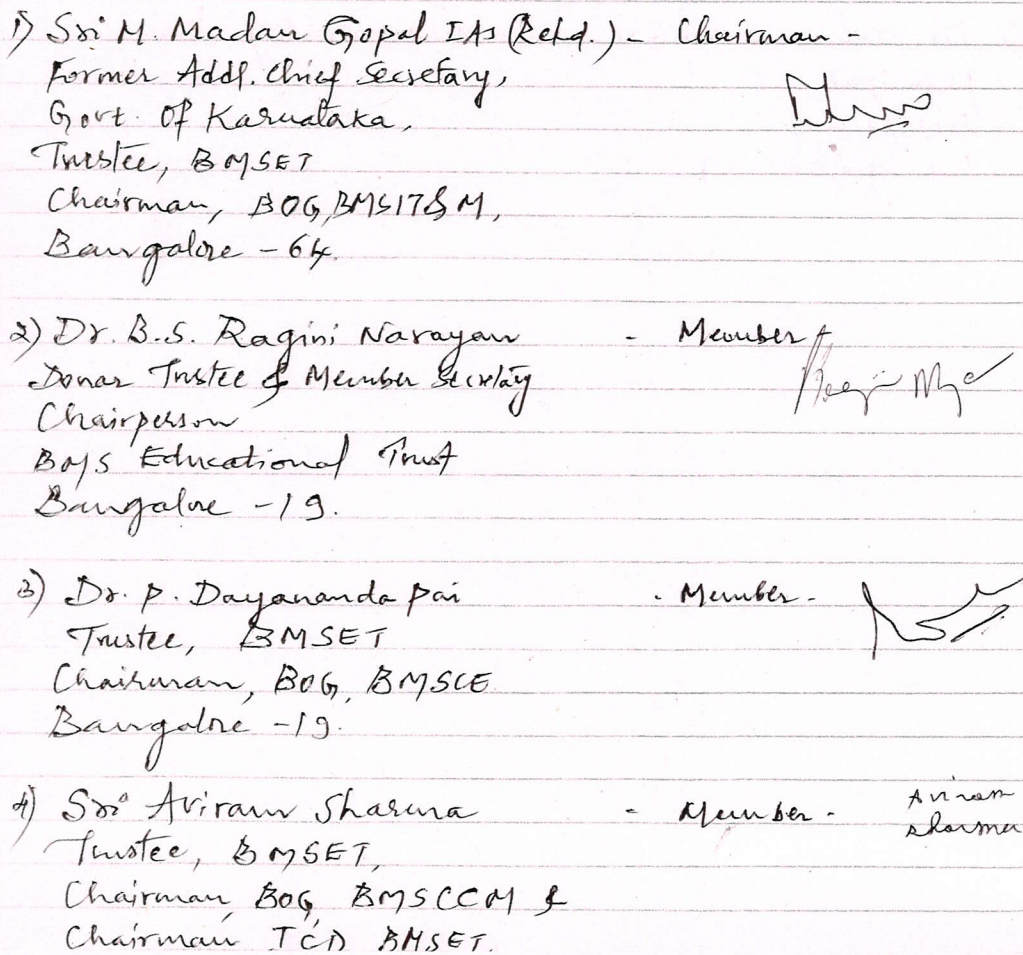 1) Sri M. Madan Gopal IAS (Retd.) - Chairman -
Former Addl. Chief Secretary,
Govt. Of Karnataka,
Trustee, BMSET
Chairman, BOG, BMSIT&M,
Bangalore - 64.
2) Dr. B.S. Ragini Narayan - Member
Donar Trustee & Member Secretary
Chairperson
BMS Educational Trust
Bangalore - 19.
3) Dr. P. Dayananda Pai - Member -
Trustee, BMSET
Chairman, BOG, BMSCE
Bangalore - 19.
4) Sri Aviram Sharma - Member - Aviram
sharma
Trustee, BMSET,
Chairman, BOG, BMSCCM &
Chairman TCD BMSET.